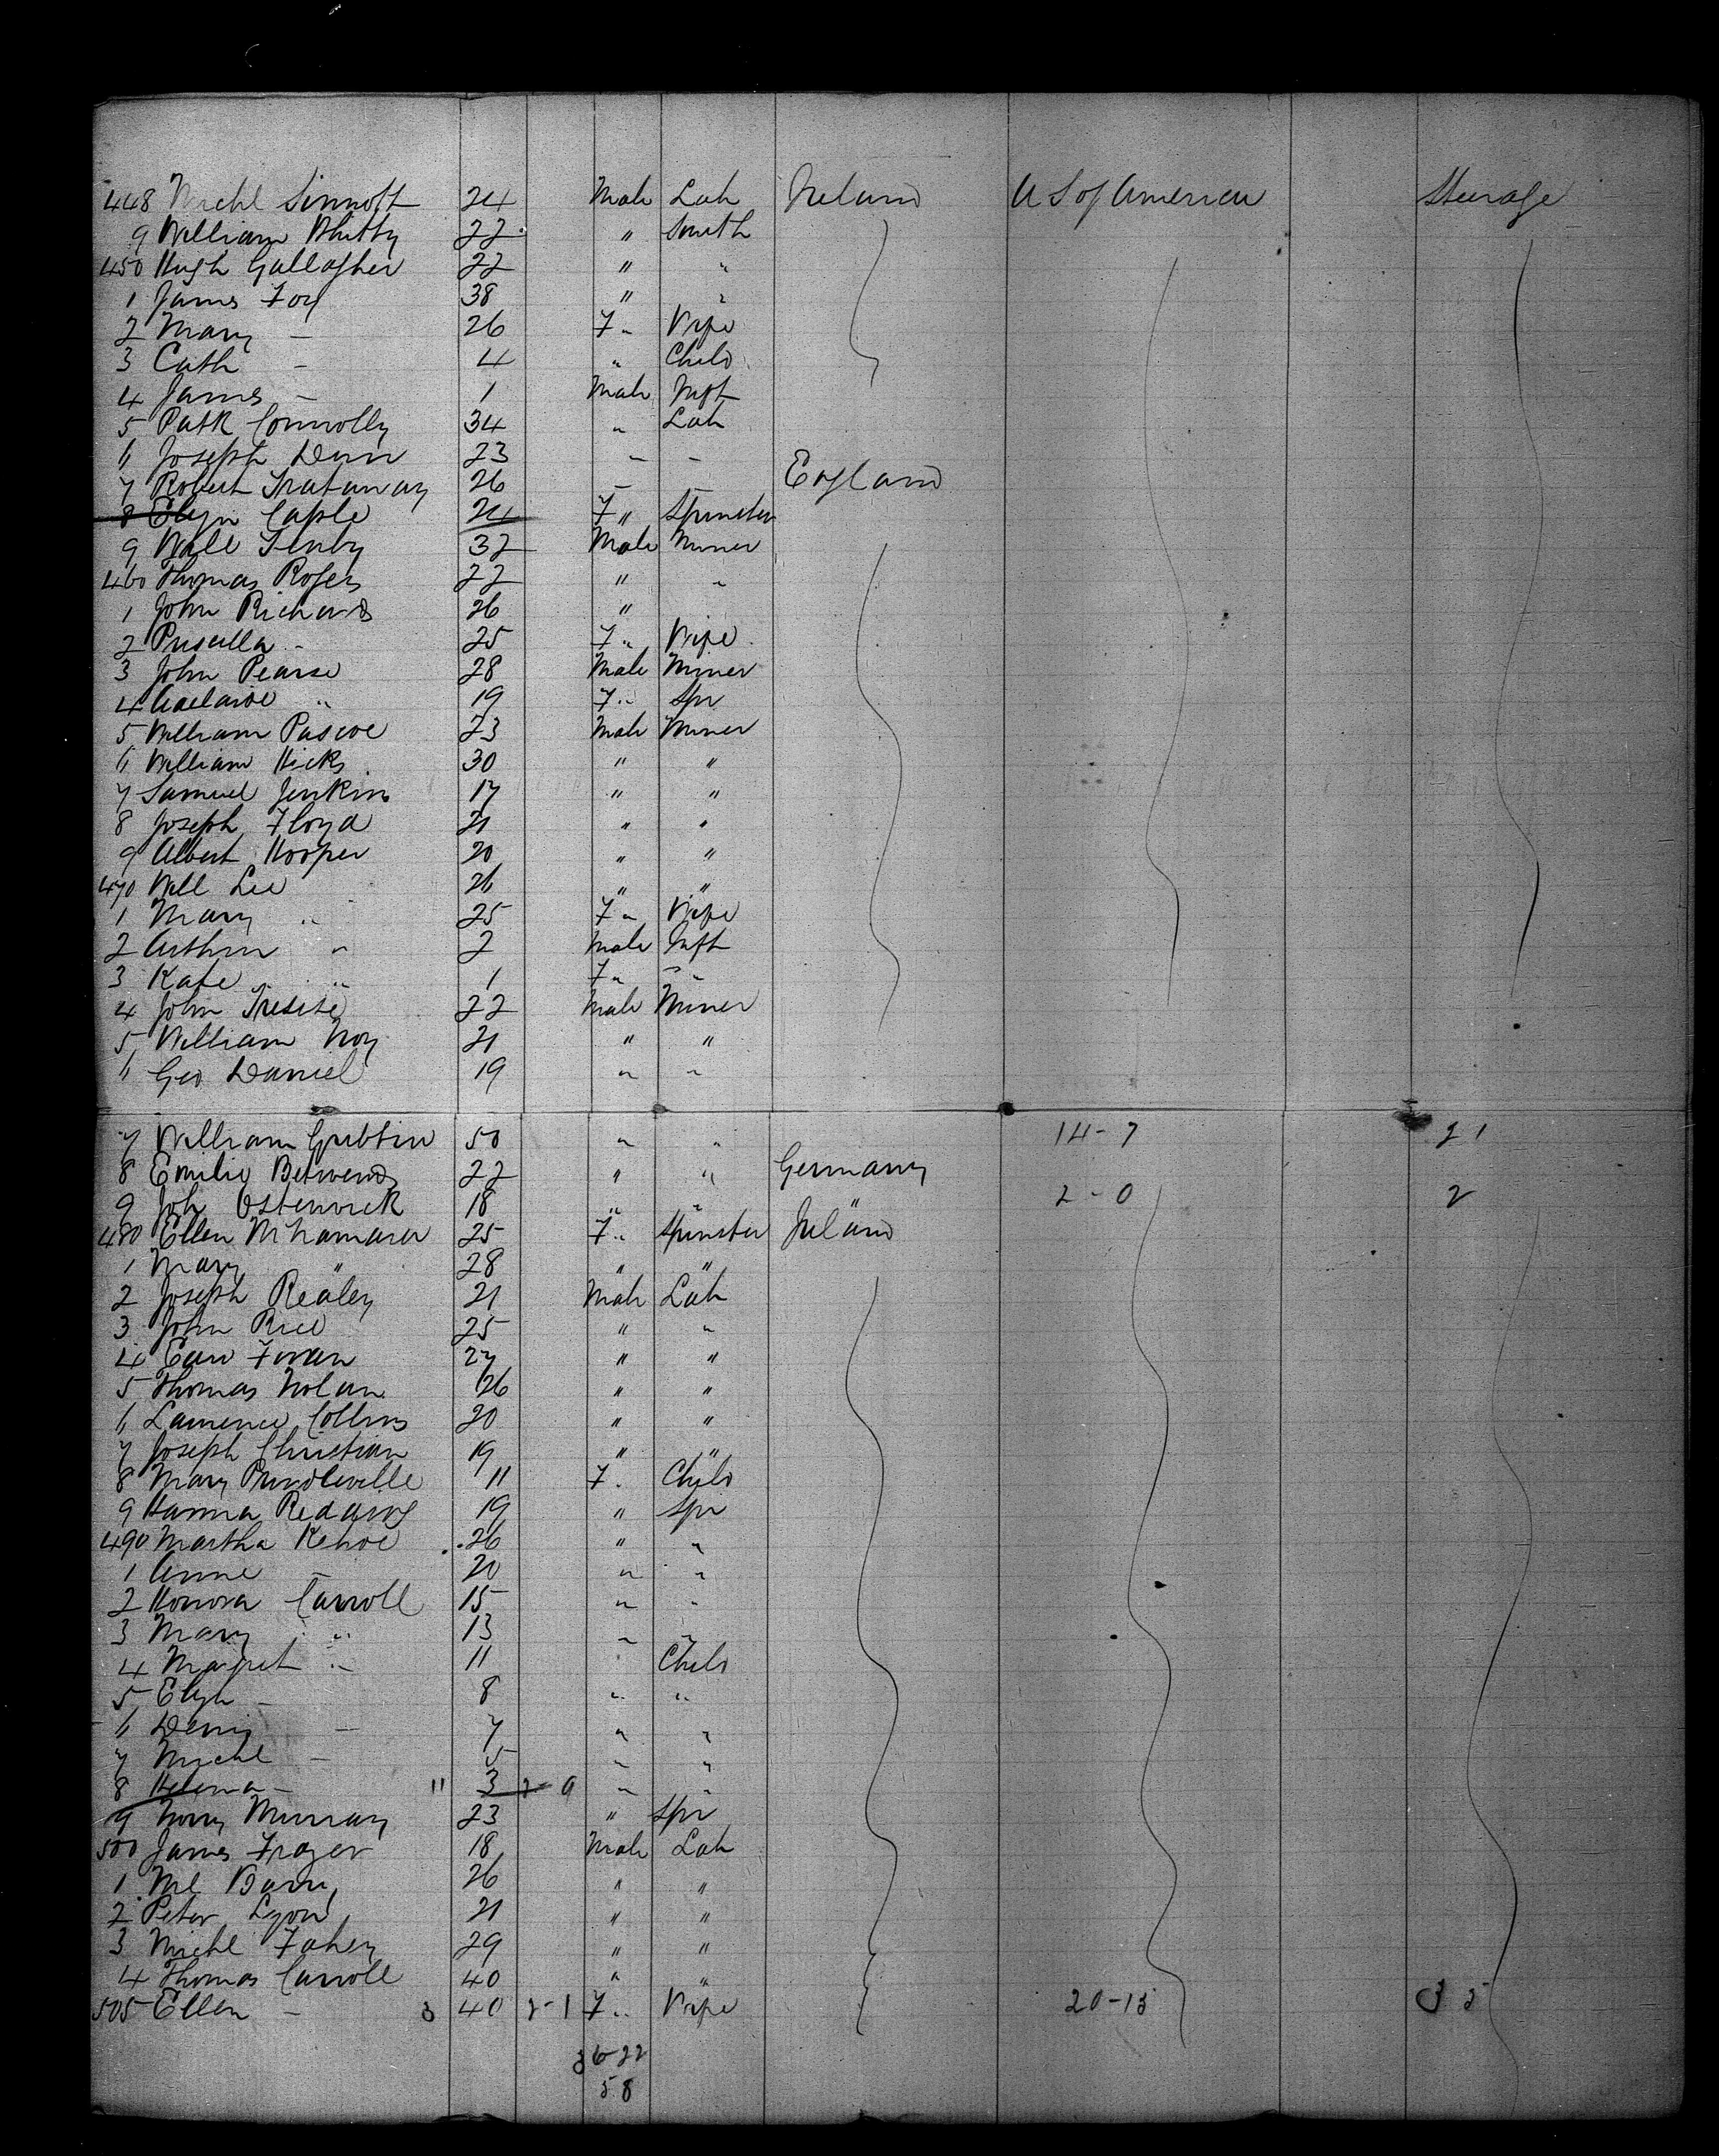 448 Michl Sinnott 24 Male Lab Ireland U S of America Steerage
9 William Whitty 22 " Smith
450 Hugh Gallagher 22 " "
1 James Foy 38 " "
2 Mary - 26 F " Wife
3 Cath - 4 " Child
4 James - 1 Male Inft
5 Patk Connolly 34 " Lab
6 Joseph Dunn 23 - -
7 Robert 26 - - England
8 Eliza Caple 24 F " Spinster
9 Will Tenby 32 Male Miner
460 Thomas Rogers 22 " "
1 John Richards 26 "
2 Priscilla - 25 F " Wife
3 John Pearse 28 Male Miner
4 Adelaide " 19 F " Spr
5 William Pascoe 23 Male Miner
6 William Hicks 30 " "
7 Samuel Jenkins 17 " "
8 Joseph Floyd 21 " "
9 Albert Hooper 20 " "
470 Will Lee 26 " "
1 Mary " 25 F " Wife
2 Arthur " 2 Male Inft
3 Kate " 1 F " "
4 John Tresise 22 Male Miner
5 William Noy 21 " "
6 Geo Daniel 19 " "
7 William Gubbin 50 " " 14-7 21
8 Emilie 22 " " Germany
9 Joh Osterwick 18 " " " 2-0 2
480 Ellen McNamara 25 F " Spinster Ireland
1 Mary " 28 " "
2 Joseph Realey 21 Male Lab
3 John Rice 25 " "
4 Edwd 27 " "
5 Thomas Nolan 26 " "
6 Laurence Collins 20 " "
7 Joseph Christian 19 " "
8 Mary 11 F " Child
9 Hanna 19 " Spr
490 Martha Kehoe 26 " "
1 Anne - 20 " "
2 Honora Carroll 15 " "
3 Mary " 13 " "
4 Margret " 11 " Child
5 Elizh - 8 " "
6 Denis - 7 " "
7 Michl - 5 " "
8 Helena - 11 3 2-9 " "
9 Nory Murray 23 " Spr
500 James Frazer 18 Male Lab
1 Ml 26 " "
2 Peter Lyons 21 " "
3 Michl Fahey 29 " "
4 Thomas Carroll 40 " "
505 Ellen - 3 40 2-1 F " Wife 20-15 35
36-22
58